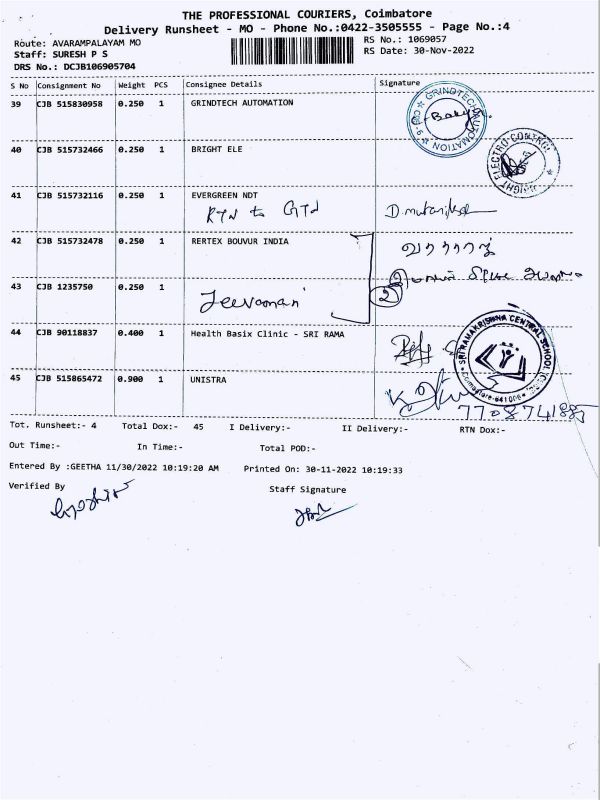 THE PROFESSIONAL COURIERS, Coimbatore
Delivery Runsheet - MO - Phone No.:0422-3505555 - Page No.:4
Route: AVARAMPALAYAM MO
RS No.: 1069057
Staff: SURESH P S
RS Date: 30-Nov-2022
DRS No.: DCJB106905704
S No Consignment No Weight PCS Consignee Details Signature
39 CJB 515830958 0.250 1 GRINDTECH AUTOMATION
GRINDTECH AUTOMATION
40 CJB 515732466 0.250 1 BRIGHT ELE
BRIGHT ELECTRO CONTROL
41 CJB 515732116 0.250 1 EVERGREEN NDT
RTN to
42 CJB 515732478 0.250 1 RERTEX BOUVUR INDIA
43 CJB 1235750 0.250 1
2
44 CJB 90118837 0.400 1 Health Basix Clinic - SRI RAMA
SRI RAMAKRISHNA CENTRAL SCHOOL
Coimbatore-641006
45 CJB 515865472 0.900 1 UNISTRA
Tot. Runsheet:- 4 Total Dox:- 45 I Delivery:- II Delivery:- RTN Dox:-
Out Time:- In Time:- Total POD:-
Entered By :GEETHA 11/30/2022 10:19:20 AM Printed On: 30-11-2022 10:19:33
Verified By Staff Signature